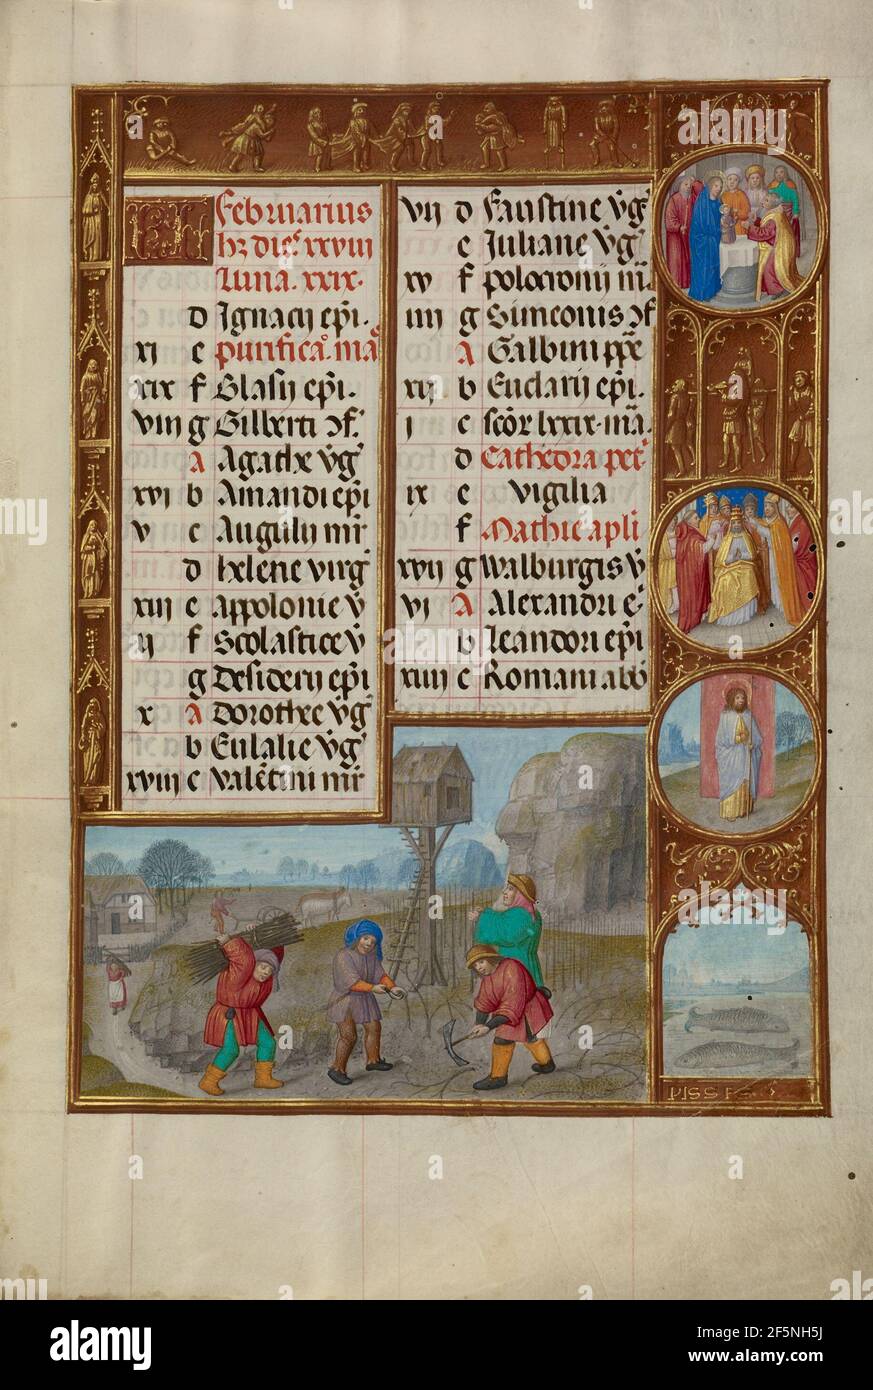 KL Februarius
hꝫ dieſ xxviii
Luna. xxix.
d Ignacij ep̄i.
xi e purifica. ma
xix f Blasij ep̄i.
viii g Gilberti ɔf.
A Agathe v̄g
xvi b Amandi ep̄i
v c Auguli mr̄
d helene virg
xiii e appolonie v̄
ij f Scolastice v̄
g Desiderij ep̄i
x A Dorothee v̄g
b Eulalie v̄g
xviii c valētini mr̄
vij d Faustine v̄g
e Juliane v̄g
xv f polocronij m̄
iiij g Simeonis ɔf
A Galbini pp̄e
xij b Eucharij ep̄i.
j c lxxix. ma
d Cathedra pet
ix e vigilia
f Mathie apli
xvij g walburgis v̄
vi A Alexandri e
b Leandori ep̄i
xiiii c Romani abb̄
PISSES
alamy
Image ID: 2F5NH5J
www.alamy.com